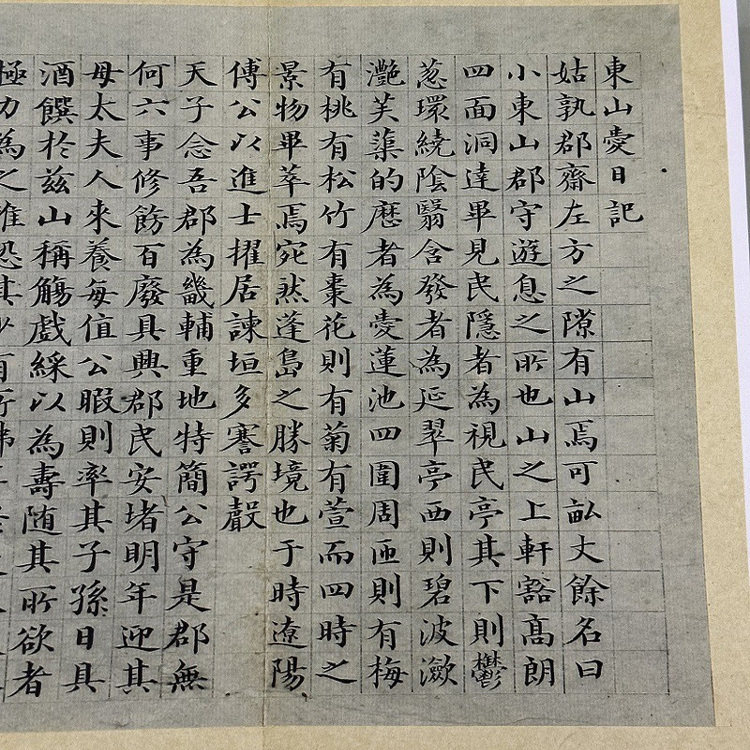 東山愛日記
姑孰郡齋左方之隙有山焉可畝丈餘名曰
小東山郡守遊息之所也山之上軒豁髙朗
四面洞達畢見民隱者為視民亭其下則鬱
葱環繞陰翳含發者為延翠亭西則碧波瀲
灔芙蕖的歴者為愛蓮池四圍周匝則有梅
有桃有松竹有棗花則有菊有萱而四時之
景物畢萃焉宛然蓬島之勝境也于時遼陽
傅公以進士擢居諫垣多謇諤聲
天子念吾郡為畿輔重地特簡公守是郡無
何六事修飭百廢具興郡民安堵明年迎其
母太夫人來養每值公暇則率其子孫日具
酒饌於茲山稱觴戲綵以為壽随其所欲者
極力為之惟恐其少有所